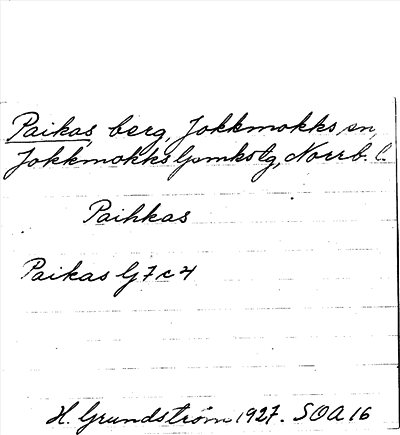 Paikas berg, Jokkmokks sn,
Jokkmokks lpmkstg, Norrb. l.
Paihkas
Paikas lj 7 c 4
H. Grundström 1927. SOA 16